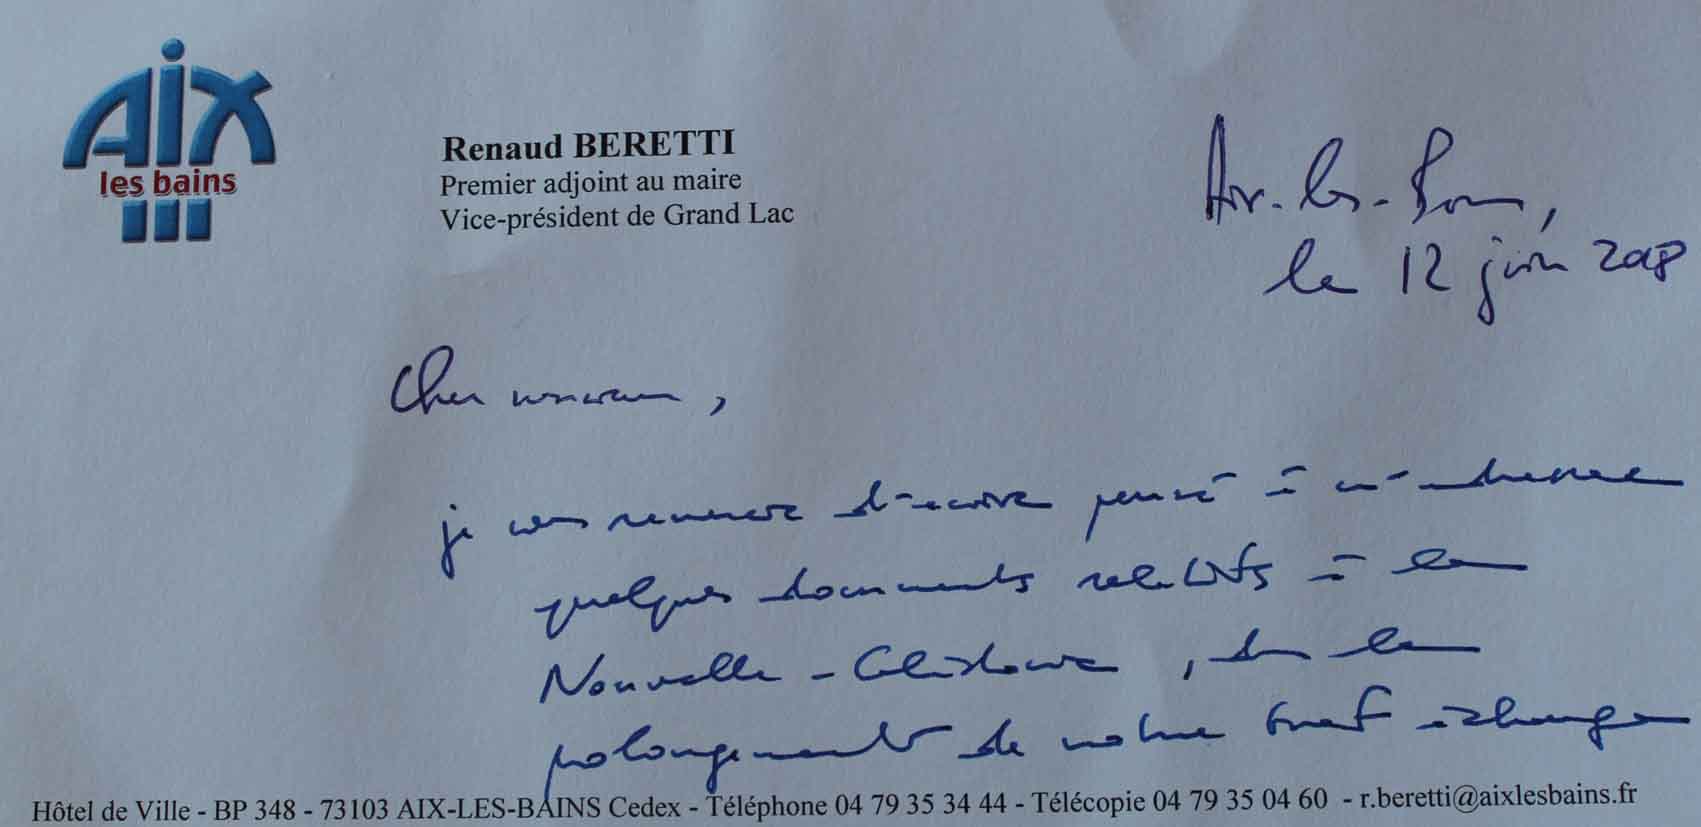 AIX
les bains
Renaud BERETTI
Premier adjoint au maire
Vice-président de Grand Lac
Aix-les-Bains,
le 12 juin 2018
Cher monsieur,
je vous remercie d'avoir pensé à m'adresser
quelques documents relatifs à la
Nouvelle-Calédonie, dans le
prolongement de notre bref échange
Hôtel de Ville - BP 348 - 73103 AIX-LES-BAINS Cedex - Téléphone 04 79 35 34 44 - Télécopie 04 79 35 04 60 - r.beretti@aixlesbains.fr